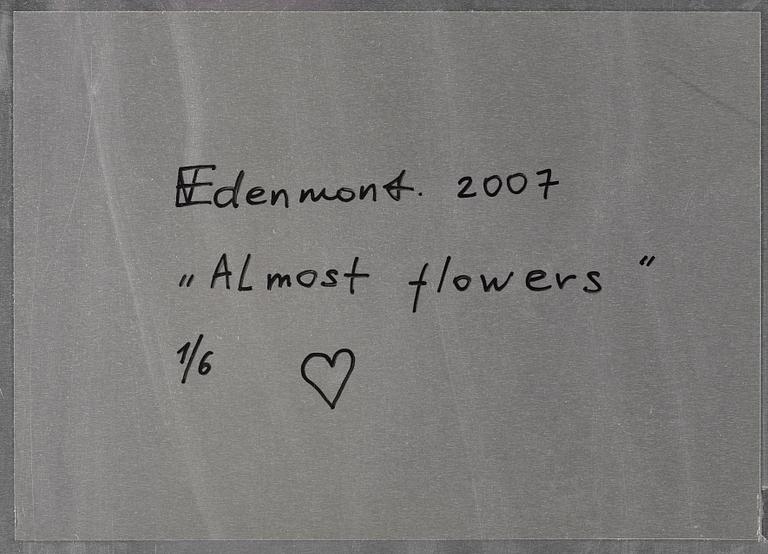 Edenmont. 2007
„ALmost flowers“
1/6 ♡